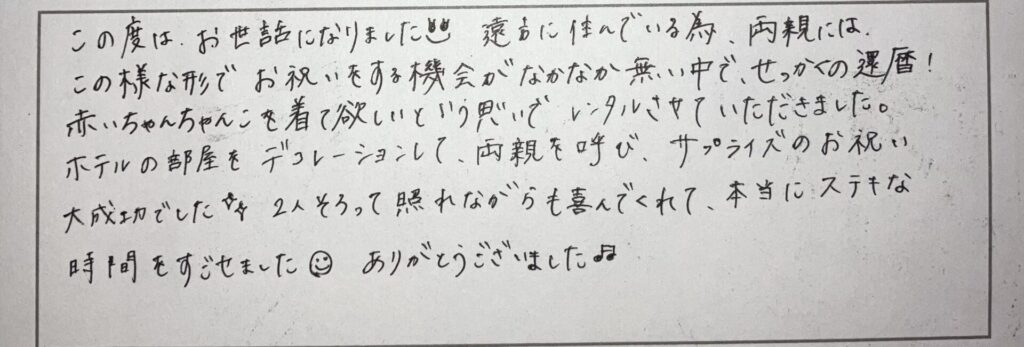 この度は、お世話になりました😊 遠方に住んでいる為、両親には、
この様な形で お祝いをする機会がなかなか無い中で、せっかくの還暦!
赤いちゃんちゃんこを着て欲しいという思いで レンタルさせていただきました。
ホテルの部屋を デコレーションして、両親を呼び、サプライズのお祝い
大成功でした✨ 2人そろって照れながらも喜んでくれて、本当にステキな
時間をすごせました☺ ありがとうございました♫